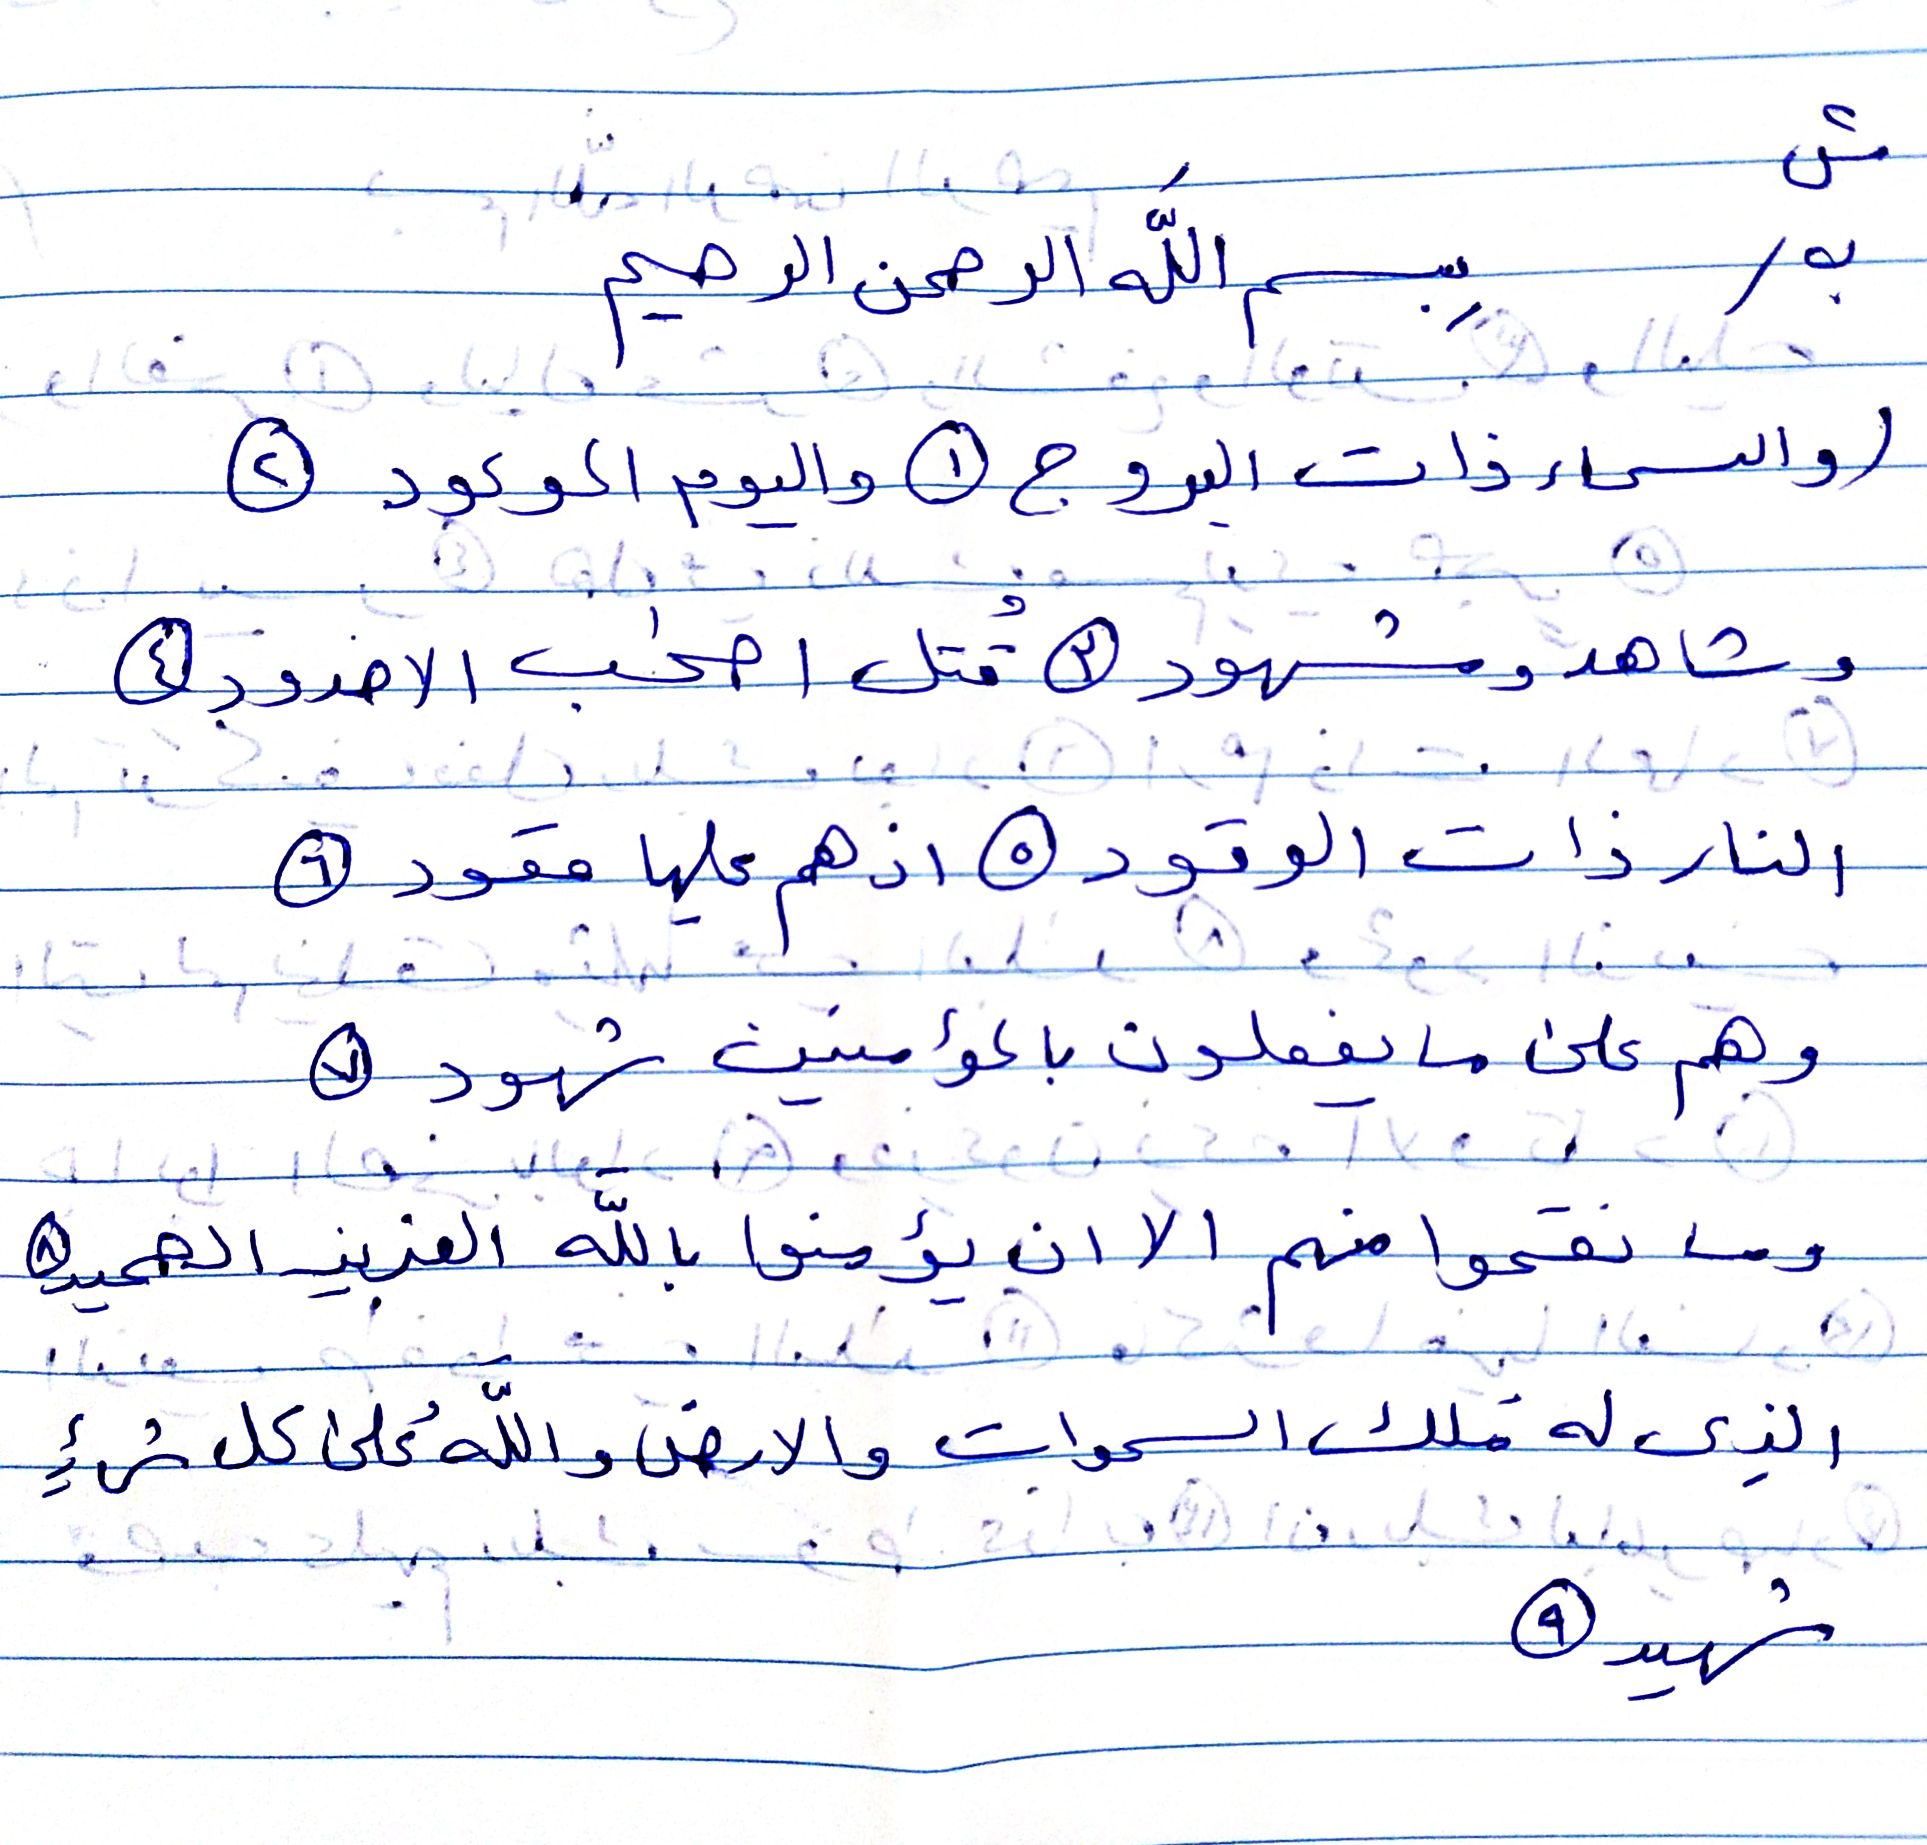 ش
به / بِسم اللَّه الرحمن الرحيم
(والسماء ذات البروج ① واليوم الموعود ②
وشاهد ومشهود ③ قُتل اصحٰب الاخدود ④
النار ذات الوقود ⑤ اذ هم عليها قعود ⑥
وهم على ما يفعلون بالمؤمنين شهود ⑦
وما نقموا منهم الا ان يؤمنوا باللَّه العزيز الحميد ⑧
الذى له ملك السموات والارض واللَّهُ على كل شىءٍ
شهيد ⑨